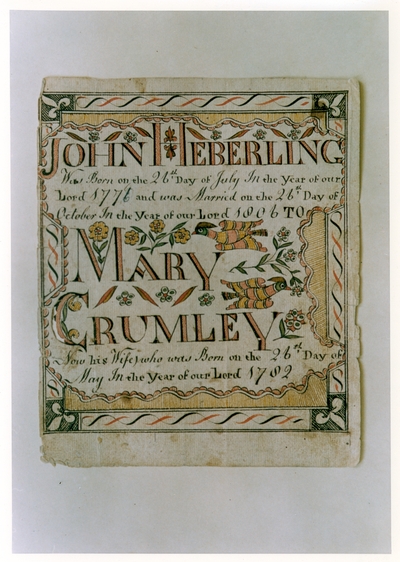 JOHN HEBERLING
Was Born on the 26th Day of July In the Year of our
Lord 1776 and was Married on the 26th Day of
October In the Year of our Lord 1806 TO
MARY
CRUMLEY
Now his Wife who was Born on the 26th Day of
May In the Year of our Lord 1782